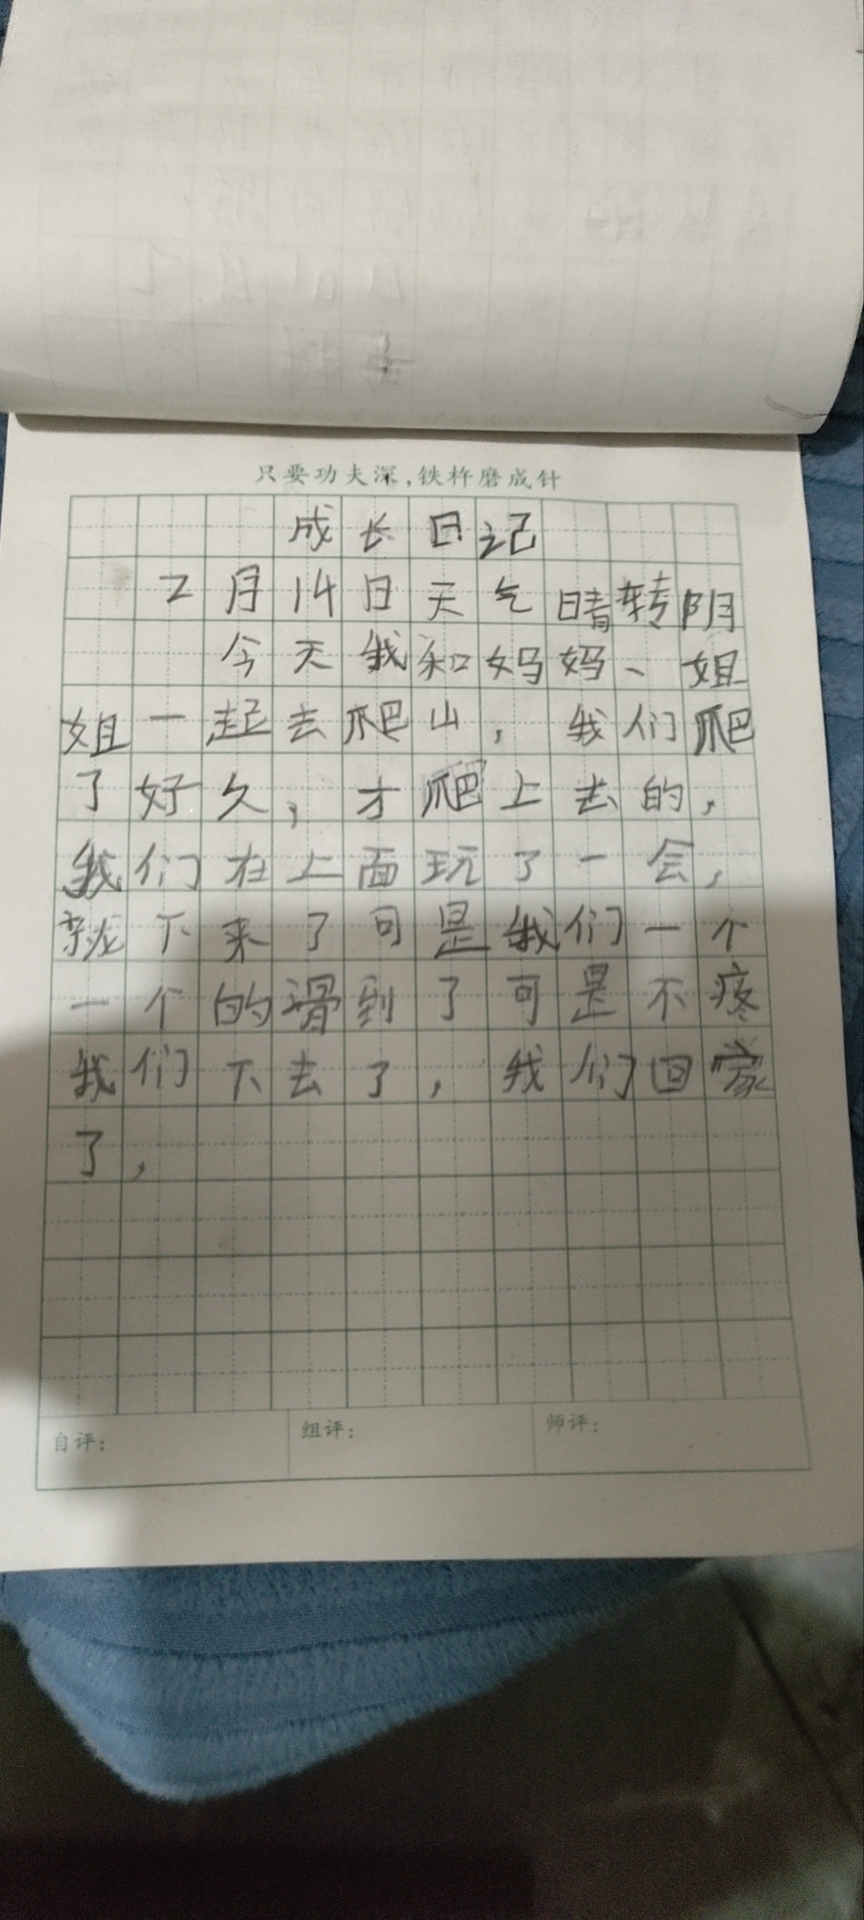 只要功夫深,铁杵磨成针
成长日记
2月14日天气晴转阴
今天我和妈妈、姐
姐一起去爬山,我们爬
了好久,才爬上去的,
我们在上面玩了一会,
就下来了可是我们一个
一个的滑到了可是不疼
我们下去了,我们回家
了,
自评: 组评: 师评: